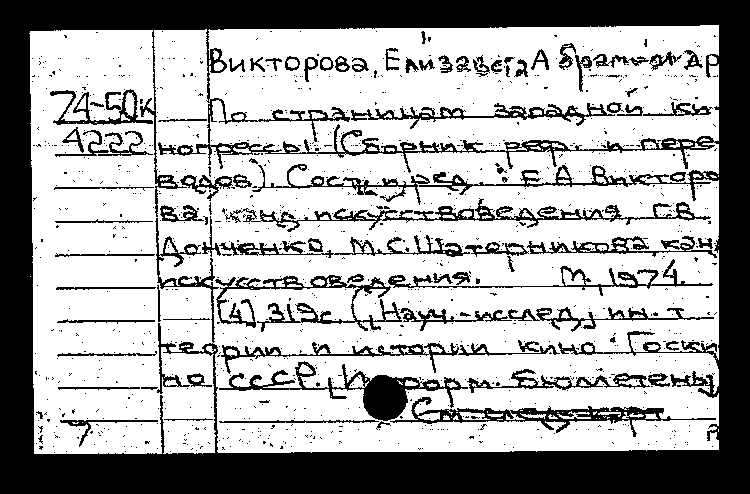 Викторова, Елизавета Абрамовна др
74-50к По страницам западной ки-
4222 нопрессы. (Сборник реф. и пере-
водов). Сост. и ред.: Е.А Викторо-
ва, канд. искусствоведения, Г.В.
Донченко, М.С.Шатерникова, канд
искусствоведения. М., 1974.
[4], 319с. ([Науч.-исслед.] ин-т
теории и истории кино Госки-
но СССР. [Информ. бюллетень]
См. след. карт.
7